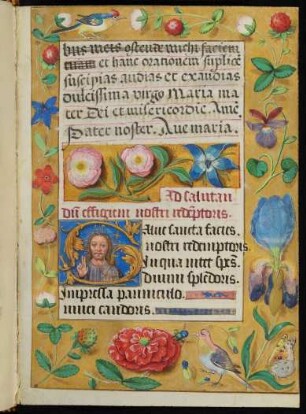 bus meis ostende michi faciem
tuam et hanc orationem supplicē
suscipias audias et exaudias
dulcissima virgo Maria ma
ter Dei et misericordie. Amē.
Pater noster. Aue maria.
Ad salutan
dū effigiem nostri redēptoris.
Salue sancta facies,
nostri redemptoris,
In qua nitet spēs
diuini splēdoris.
Impressa panniculo.
niuei candoris.